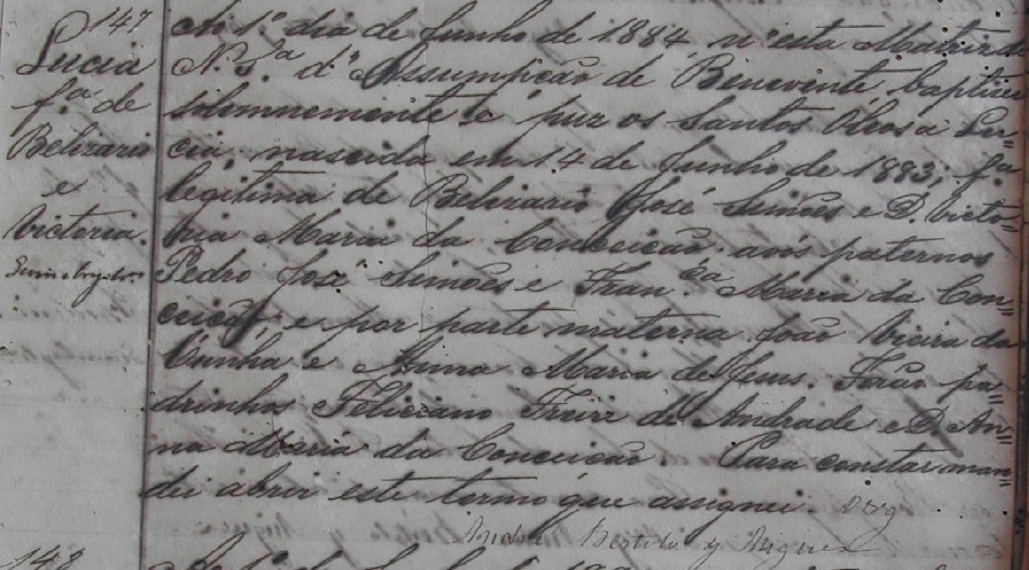 147
Lucia
f.ª de
Belizario
e
Victoria.
Ao 1.º dia de Junho de 1884 n'esta Matriz de
N. S.ª d'Assumpção de Benevente baptizei
solemnemente e puz os Santos Oleos a Lu=
cia, nascida em 14 de Junho de 1883; f.ª
legitima de Belizario José Simões e D. Victo=
ria Maria da Conceicão. avós paternos
Pedro José Simões e Fran.ca Maria da Con=
ceicão, e por parte materna João Vieira da
Cunha e Anna Maria de Jesus. Forão pa=
drinhos Feliciano Freire de Andrade e D. An=
na Maria da Conceicão. Para constar man=
dei abrir este termo que assignei.
148